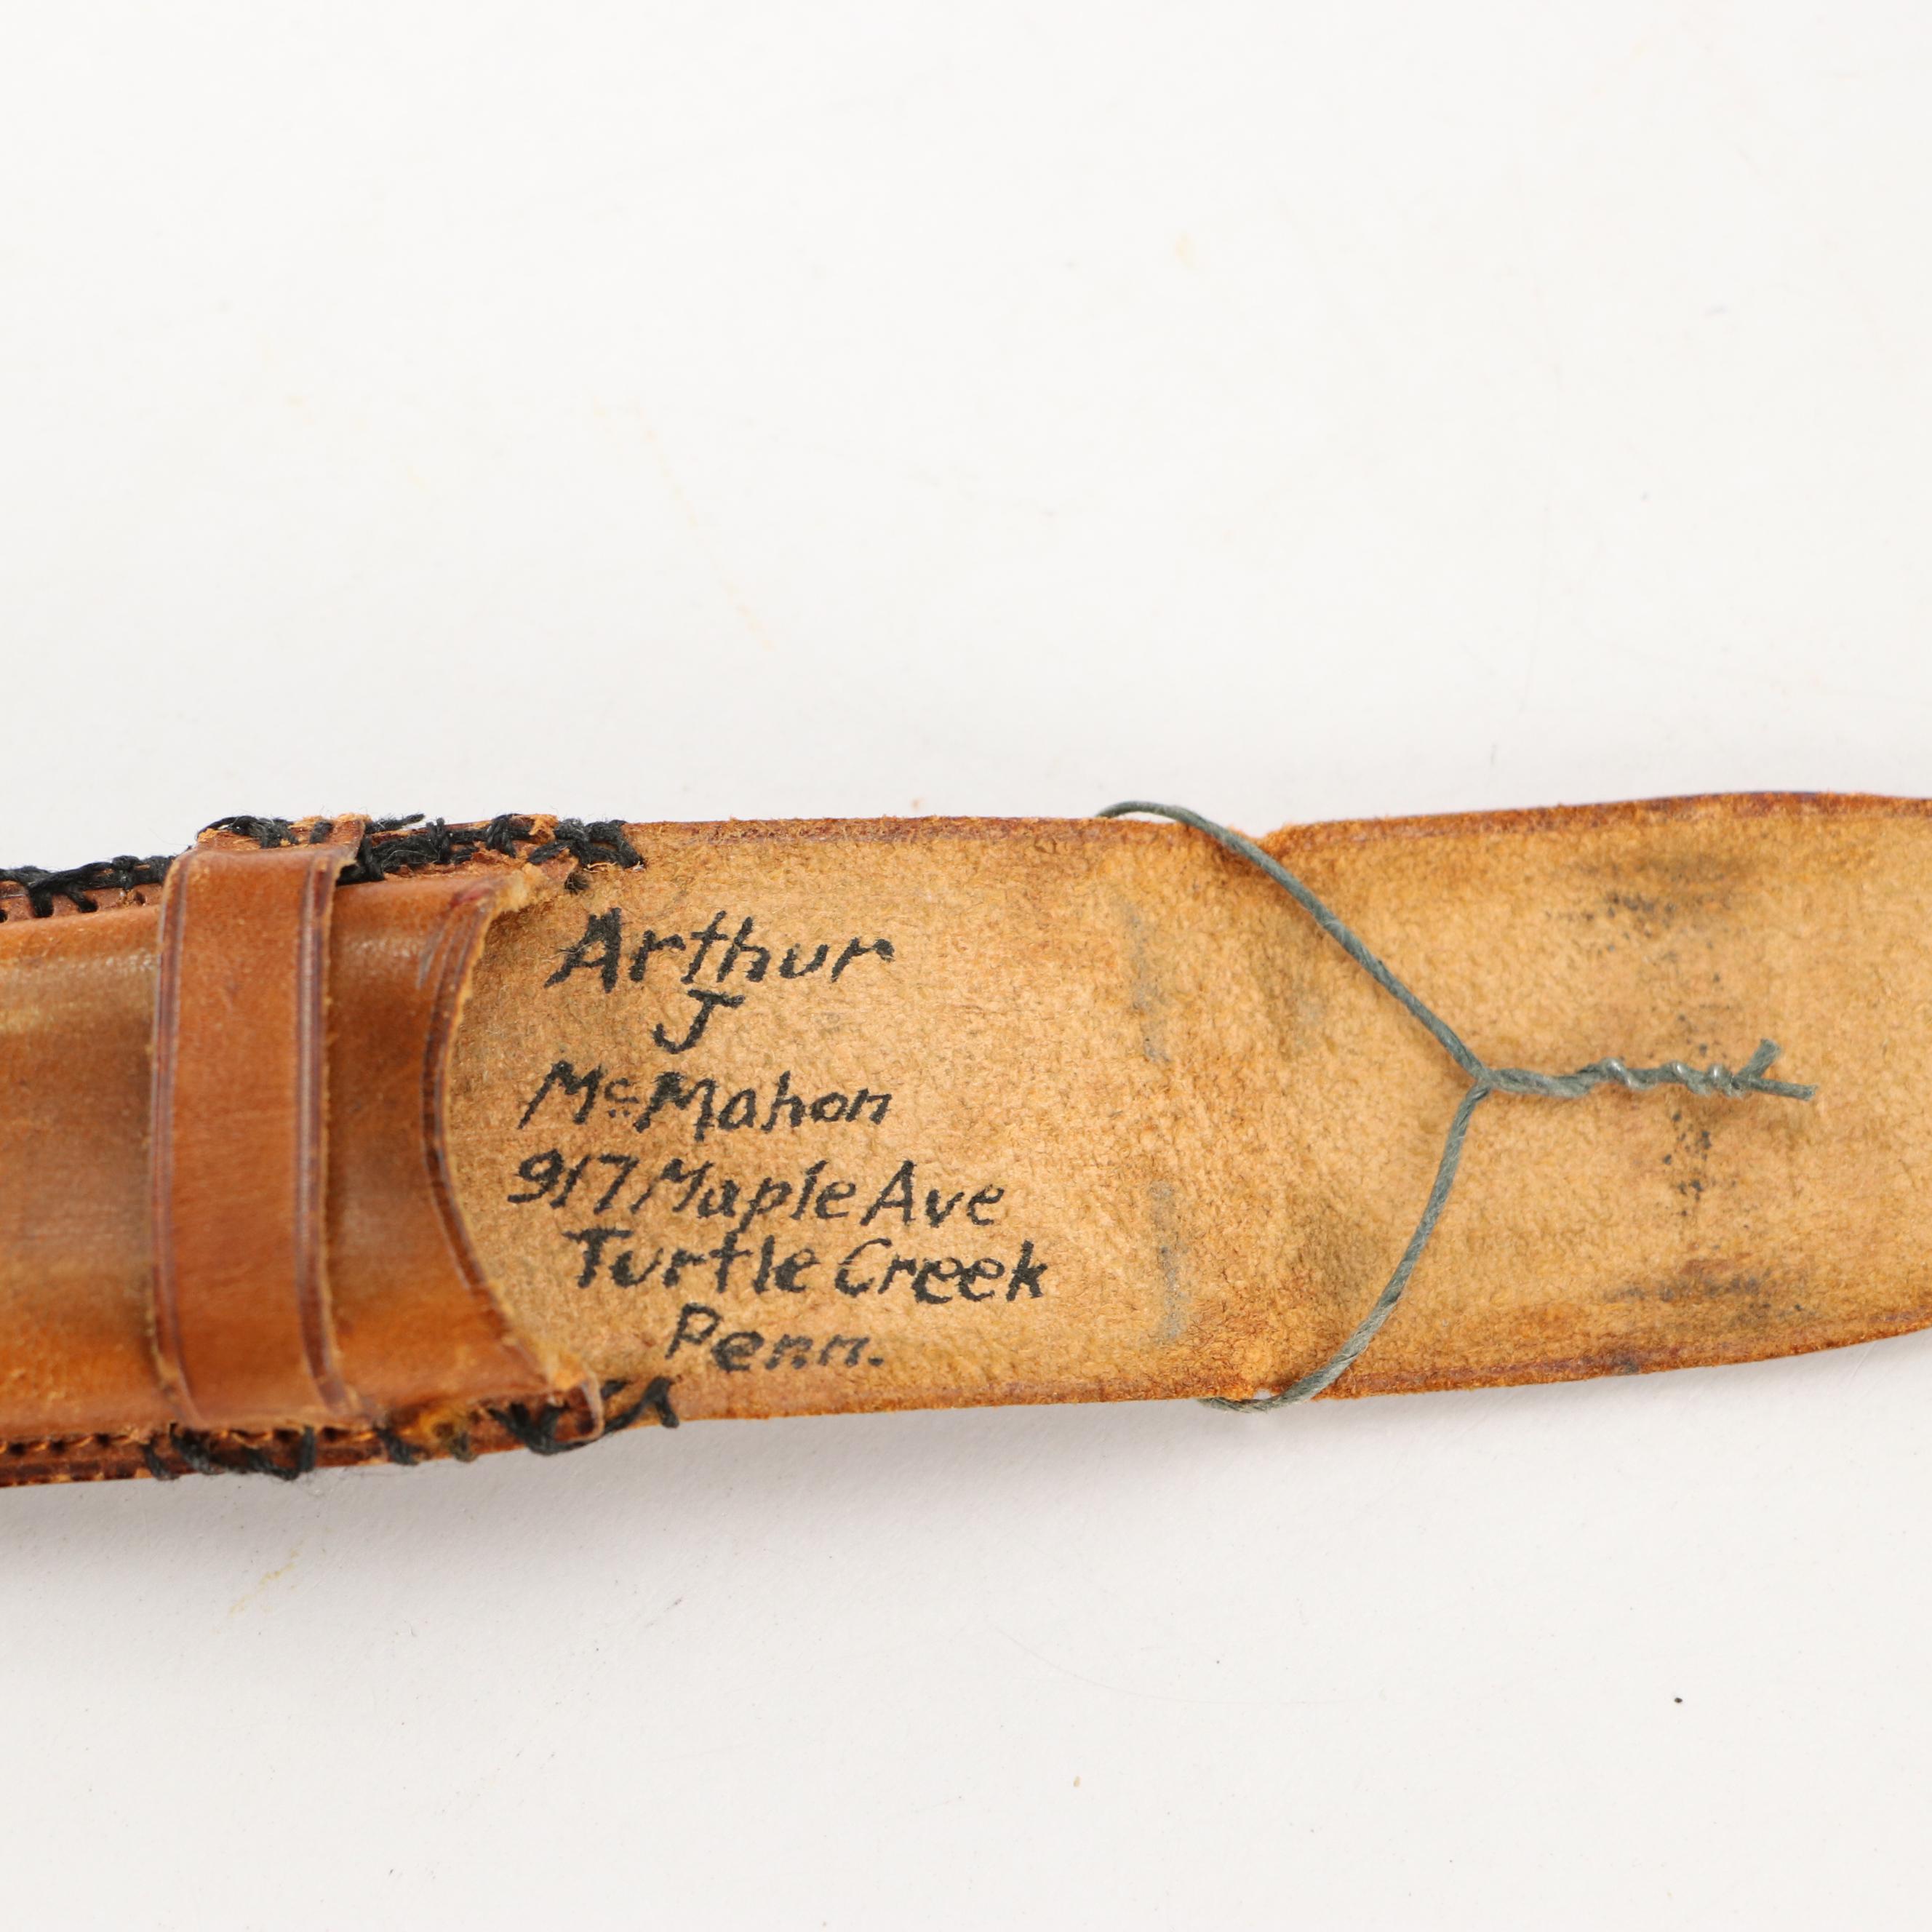 Arthur
J
McMahon
917 Maple Ave
Turtle Creek
Penn.